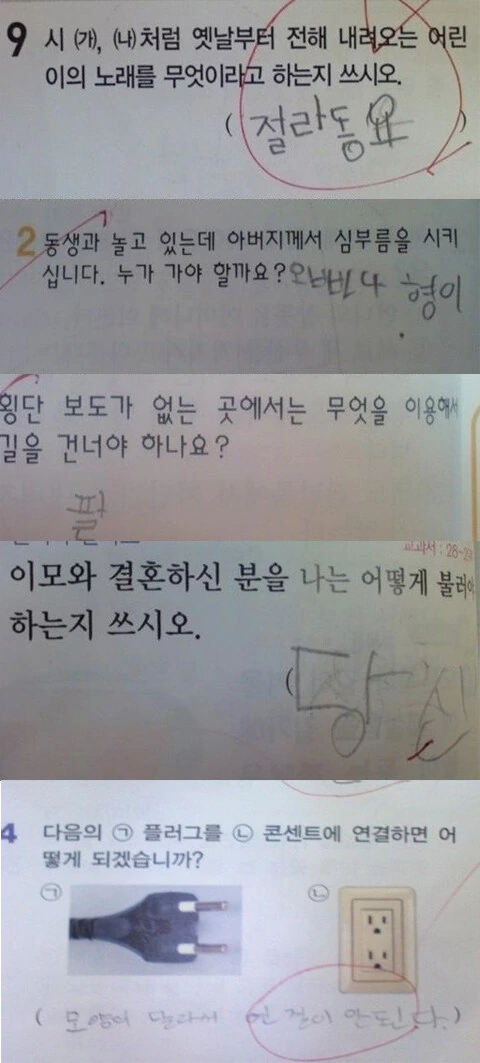 9 시 ㈎, ㈏처럼 옛날부터 전해 내려오는 어린
이의 노래를 무엇이라고 하는지 쓰시오.
( 절라동요 )
2 동생과 놀고 있는데 아버지께서 심부름을 시키
십니다. 누가 가야 할까요? 오빠나 형이
횡단 보도가 없는 곳에서는 무엇을 이용해서
길을 건너야 하나요?
팔
교과서 : 28~
이모와 결혼하신 분을 나는 어떻게 불러야
하는지 쓰시오.
( 당신
4 다음의 ㉠ 플러그를 ㉡ 콘센트에 연결하면 어
떻게 되겠습니까?
㉠ ㉡
( 모양이 달라서 연결이 안된다. )